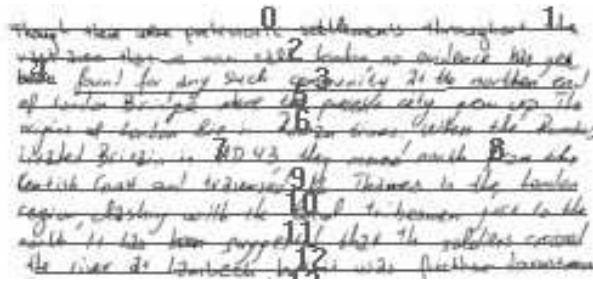 Though there were prehistoric settlements throughout the
vast area that is now called London no evidence has yet
been found for any such community at the northern end
of London Bridge where the present city grew up. The
origins of London lie in Roman times. When the Romans
invaded Britain in AD 43, they moved north from the
Kentish Coast and traversed the Thames in the London
region, clashing with the local tribesmen just to the
north. It has been suggested that the soldiers crossed
the river at Lambeth, but it was further downstream